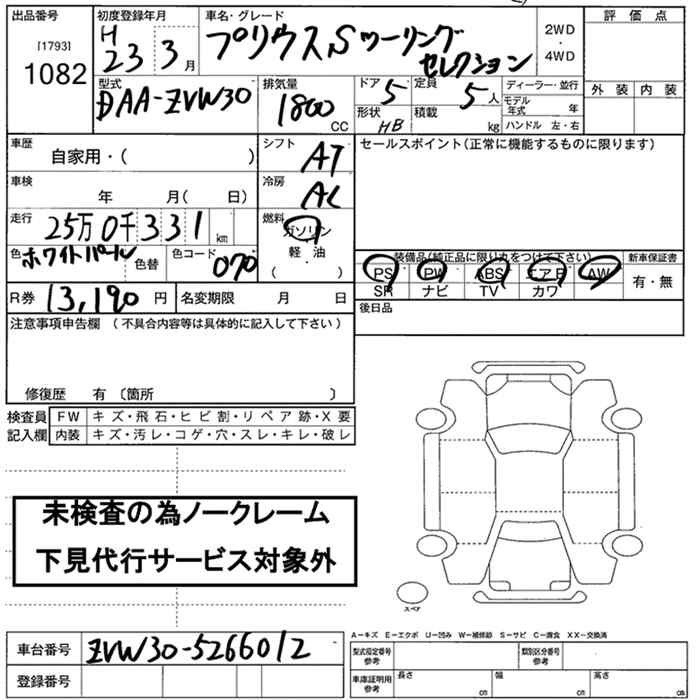 出品番号 初度登録年月 車名・グレード 評価点
[1793] H プリウス Sツーリング 2WD
1082 23 3月 セレクション ・ 4WD
外装 内装
型式 排気量 ドア 定員 ディーラー・並行
DAA-ZVW30 1800 CC 5 5人 モデル年式 年
形状 HB 積載 kg ハンドル 左・右
車歴 シフト セールスポイント(正常に機能するものに限ります)
自家用・( ) AT
車検 冷房
年 月( 日) AC
走行 燃料
25万0千331km ガソリン
色 色替 色コード 軽・油
ホワイトパール 070 ( )
装備品(純正品に限り丸をつけて下さい) 新車保証書
PS PW ABS エアB AW 有・無
SR ナビ TV カワ
R券 13,190円 名変期限 月 日 後日品
注意事項申告欄 (不具合内容等は具体的に記入して下さい)
修復歴 有〔箇所 〕
検査員 FW キズ・飛石・ヒビ割・リペア跡・X要
記入欄 内装 キズ・汚レ・コゲ・穴・スレ・キレ・破レ
未検査の為ノークレーム
下見代行サービス対象外
スペア
A-キズ E-エクボ U-凹み W-補修跡 S-サビ C-腐食 XX-交換済
車台番号 ZVW30-5266012 型式指定番号 参考 類別区分番号 参考
登録番号 車庫証明用 参考 長さ cm 幅 cm 高さ cm